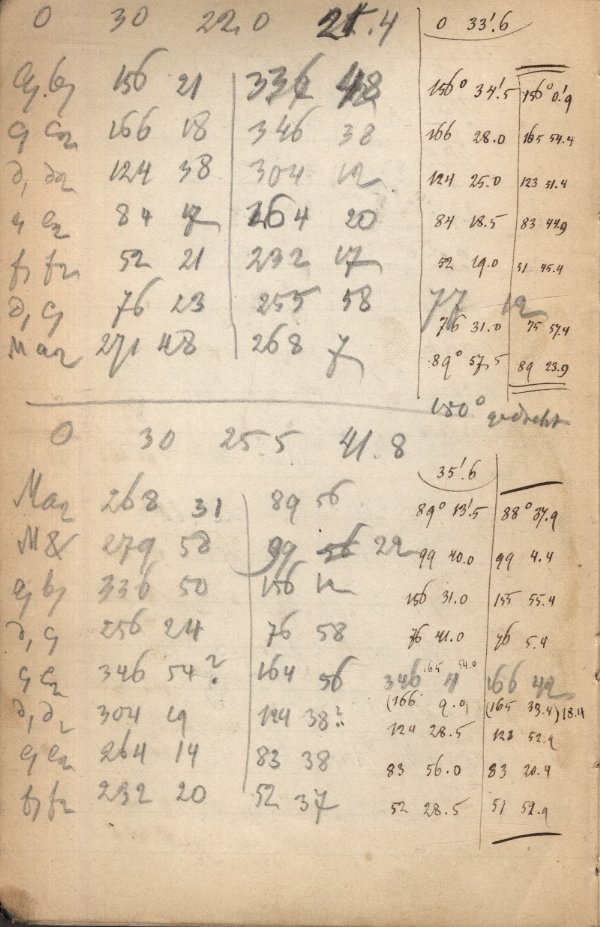 0 30 22.0 21.4 0 33'.6
a, b, 156 21 336 48 156° 34'.5 156° 0'.9
166 18 346 38 166 28.0 165 54.4
d, d2 124 38 304 12 124 25.0 123 51.4
84 17 264 20 84 18.5 83 44.9
f, f2 52 21 232 17 52 19.0 51 45.4
76 23 255 58 77 12
76 31.0 75 57.4
Ma2 271 48 268 7 89° 57.5 89 23.9
180° gedreht
0 30 25.5 41.8
35'.6
Ma2 268 31 89 56 89° 13'.5 88° 37.9
279 58 99 56 22 99 40.0 99 4.4
a, b, 336 50 156 12 156 31.0 155 55.4
256 24 76 58 76 41.0 76 5.4
165 54.0
346 54? 164 56 346 166 42
(166 9.9) (165 39.4) 18.4
d, d2 304 19 124 38? 124 28.5 123 52.9
264 14 83 38 83 56.0 83 20.4
f, f2 232 20 52 37 52 28.5 51 52.9